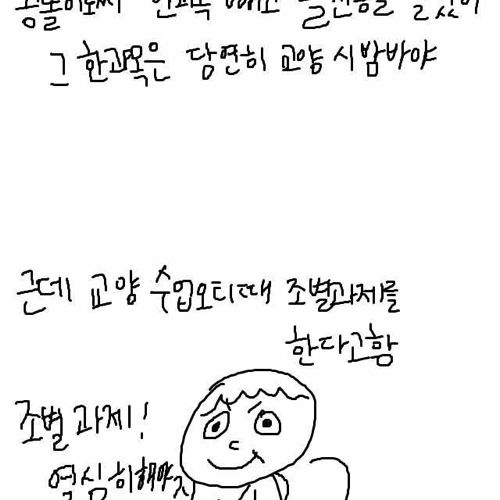 그 한과목은 당연히 교양 시밤바야
근데 교양 수업오티때 조별과제를
한다고함
조별 과제!
열심히해야지